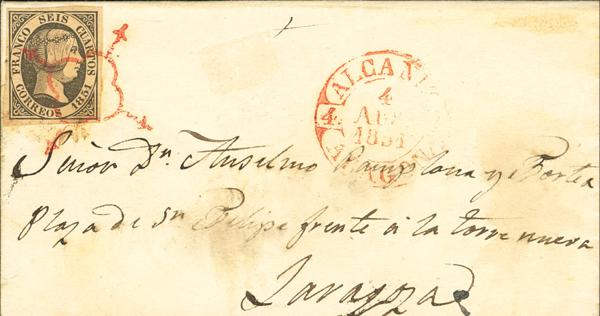 FRANCO SEIS CUARTOS
CORREOS 1851
ALCANI
4
1851
Señor Dn. Anselmo Pamplona y
Plaza de Sn. Felipe frente á la torre nueva
Zaragoza